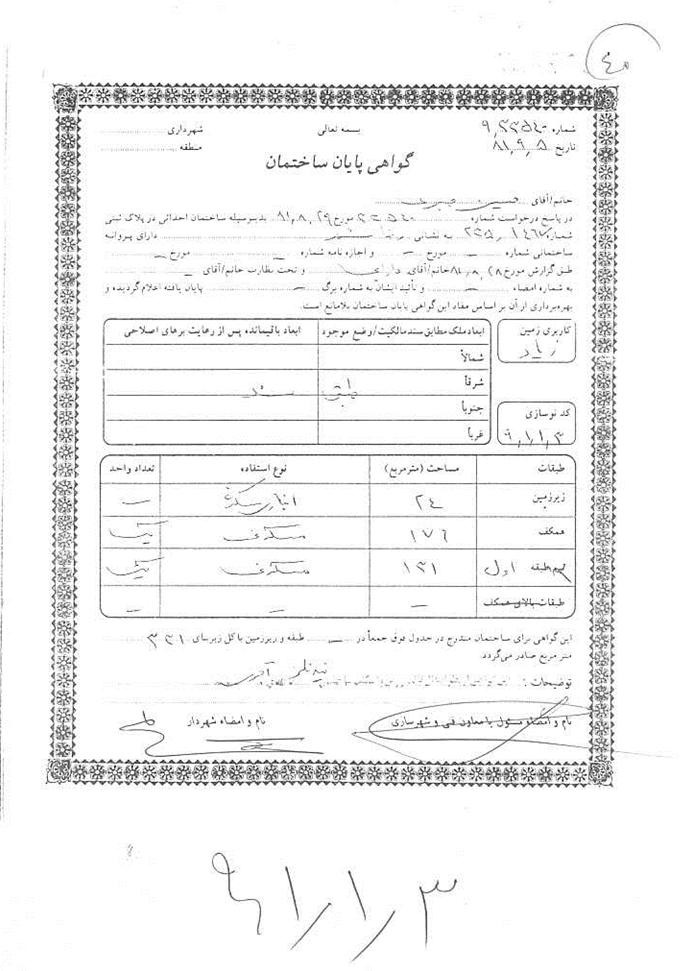 ۴۰
شماره
بسمه تعالی
شهرداری
تاریخ ۸۱٫۹٫۵
منطقه
گواهی پایان ساختمان
خانم/آقای حسین
در پاسخ درخواست شماره مورخ ۸۱٫۸٫۲۹ بدینوسیله ساختمان احداثی در پلاک ثبتی
شماره به نشانی دارای پروانه
ساختمانی شماره – مورخ – و اجازه نامه شماره – مورخ –
طبق گزارش مورخ ۸۱٫۸٫۲۸ خانم/آقای دارابی و تحت نظارت خانم/آقای –
به شماره امضاء – و تأئید ایشان به شماره برگ – پایان یافته اعلام گردیده و
بهره‌برداری از آن بر اساس مفاد این گواهی پایان ساختمان بلامانع است.
کاربری زمین
ابعاد ملک مطابق سند مالکیت/وضع موجود
ابعاد باقیمانده پس از رعایت برهای اصلاحی
شمالاً
شرقاً
طبق سند
جنوباً
غرباً
کد نوسازی
۹٫۱٫۱٫۳
طبقات
مساحت (مترمربع)
نوع استفاده
تعداد واحد
زیرزمین ۲۴ انباری –
همکف ۱۷۶ مسکونی یک
طبقه اول ۱۳۱ مسکونی یک
طبقات بالای همکف – – –
این گواهی برای ساختمان مندرج در جدول فوق جمعاً در – طبقه و زیرزمین با کل زیربنای ۳۳۱
متر مربع صادر می‌گردد
توضیحات :
نام و امضاء مسئول یا معاون فنی و شهرسازی
نام و امضاء شهردار
۹٫۱٫۱٫۳